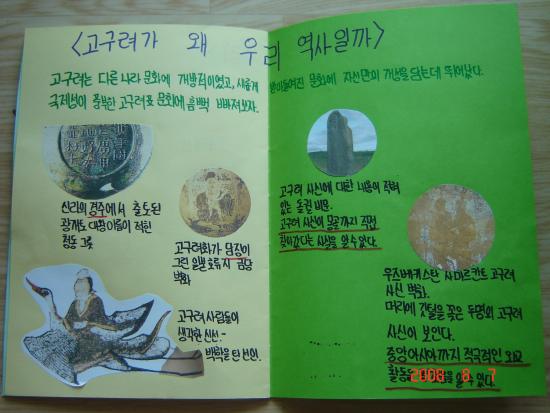 <고구려가 왜 우리 역사일까>
고구려는 다른 나라 문화에 개방적이었고, 새롭게 받아들여진 문화에 자신만의 개성을 담는데 뛰어났다.
국제성이 풍부한 고구려표 문화에 흠뻑 빠져보자.
신라의 경주에서 출토된
광개토대왕이름이 적힌
청동 그릇
고구려화가 담징이
그린 일본 호류지 금당
벽화
고구려 사람들이
생각한 신선-
백학을 탄 선인.
고구려 사신에 대한 내용이 적혀
있는 돌궐 비문.
고구려 사신이 몽골까지 직접
찾아갔다는 사실을 알수있다.
우즈베키스탄 사마르칸트 고구려
사신 벽화.
머리에 깃털을 꽂은 두명의 고구려
사신이 보인다.
중앙아시아까지 적극적인 외교
활동을 알 수 있다.
2008 8 7